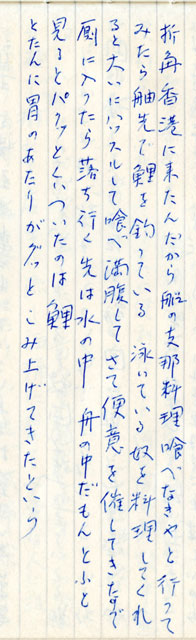 折角香港に来たんだから船の支那料理喰べなきゃと行って
みたら舳先で鯉を釣っている 泳いでいる奴を料理してくれ
ると大いにハッスルして喰べ満腹して さて便意を催してきたので
厠に入ったら落ち行く先は水の中 舟の中だもんとふと
見るとパクッとくいついたのは鯉
とたんに胃のあたりがグッとこみ上げてきたという